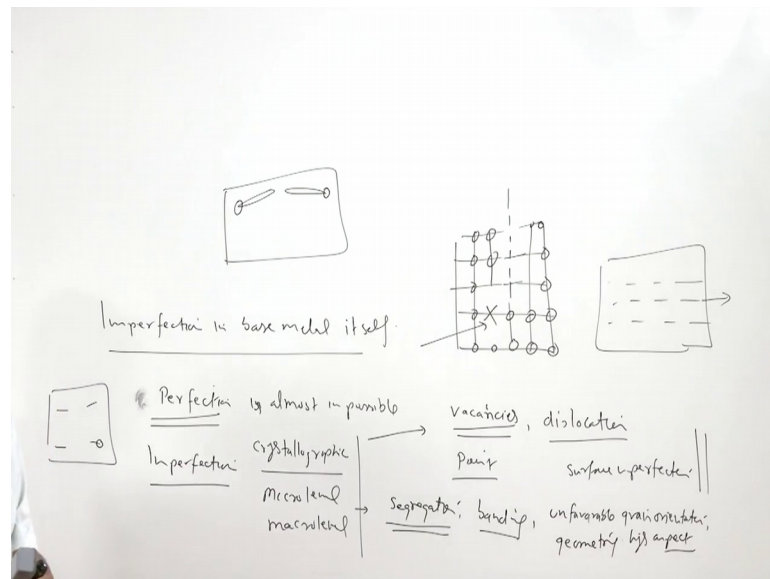 Imperfection in base metal itself.
Perfection is almost impossible
Imperfection crystallographic
microlevel
macrolevel
vacancies, dislocation
Point surface imperfection
segregation, banding, unfavorable grain orientation,
geometry high aspect